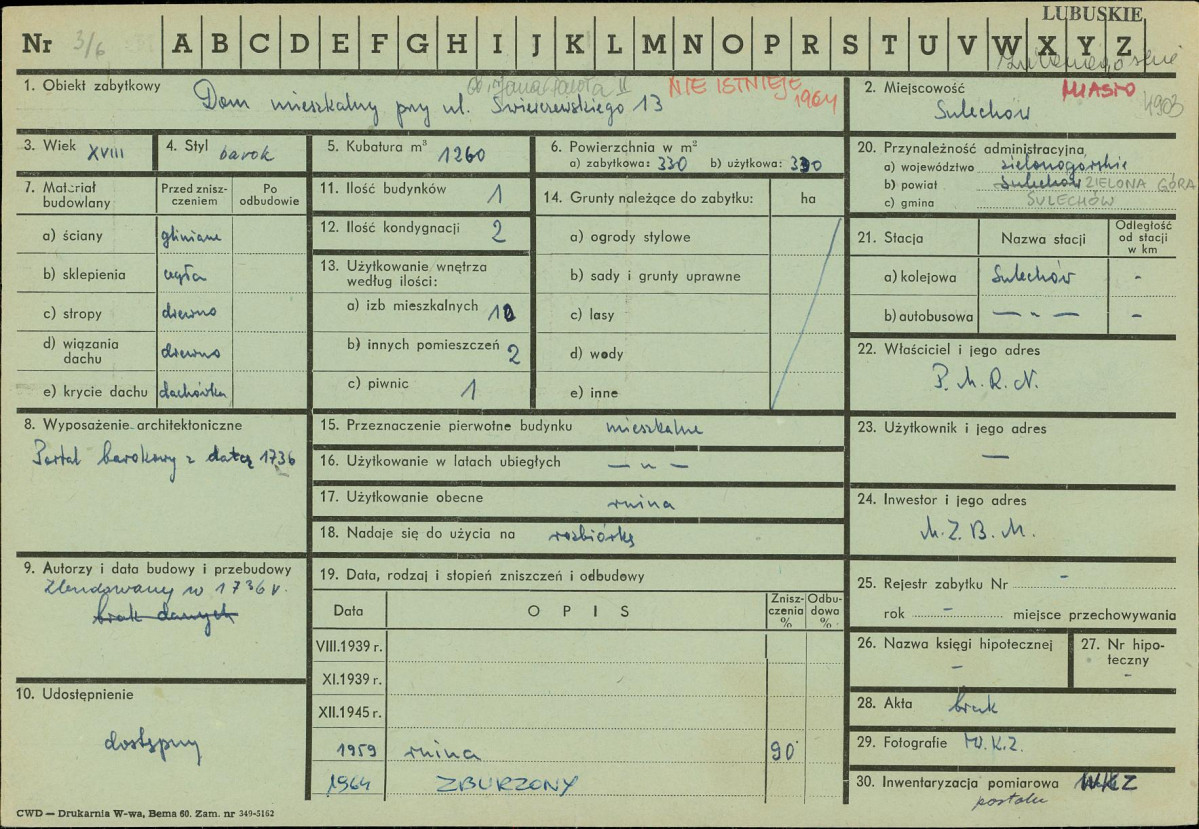 LUBUSKIE
Nr 3/6 A B C D E F G H I J K L M N O P R S T U V W X Y Z
1. Obiekt zabytkowy
ob. Jana Pawła II
NIE ISTNIEJE
1964
Dom mieszkalny przy ul. Świerczewskiego 13
2. Miejscowość
MIASTO
4903
Sulechów
3. Wiek XVIII
4. Styl barok
5. Kubatura m³ 1260
6. Powierzchnia w m²
a) zabytkowa: 330 b) użytkowa: 330
20. Przynależność administracyjna
a) województwo zielonogórskie
b) powiat Sulechów ZIELONA GÓRA
c) gmina SULECHÓW
7. Materiał budowlany
Przed znisz-
czeniem
Po
odbudowie
a) ściany gliniane
b) sklepienia cegła
c) stropy drewno
d) wiązania
dachu drewno
e) krycie dachu dachówka
11. Ilość budynków 1
12. Ilość kondygnacji 2
13. Użytkowanie wnętrza
według ilości:
a) izb mieszkalnych
b) innych pomieszczeń 2
c) piwnic 1
14. Grunty należące do zabytku: ha
a) ogrody stylowe
b) sady i grunty uprawne
c) lasy
d) wody
e) inne
21. Stacja
Nazwa stacji
Odległość
od stacji
w km
a) kolejowa Sulechów -
b) autobusowa — " — -
22. Właściciel i jego adres
P. M. R. N.
8. Wyposażenie architektoniczne
Portal barokowy z datą 1736
15. Przeznaczenie pierwotne budynku mieszkalne
16. Użytkowanie w latach ubiegłych — " —
17. Użytkowanie obecne ruina
18. Nadaje się do użycia na rozbiórkę
23. Użytkownik i jego adres
—
24. Inwestor i jego adres
M. Z. B. M.
9. Autorzy i data budowy i przebudowy
Zbudowany w 1736 r.
brak danych
10. Udostępnienie
dostępny
19. Data, rodzaj i stopień zniszczeń i odbudowy
Data
OPIS
Znisz-
czenia
%
Odbu-
dowa
%
VIII.1939 r.
XI.1939 r.
XII.1945 r.
1959 ruina 90
1964 ZBURZONY
25. Rejestr zabytku Nr -
rok - miejsce przechowywania
26. Nazwa księgi hipotecznej
-
27. Nr hipo-
teczny
-
28. Akta brak
29. Fotografie W.K.Z.
30. Inwentaryzacja pomiarowa WKZ
portalu
CWD — Drukarnia W-wa, Bema 60. Zam. nr 349-5162